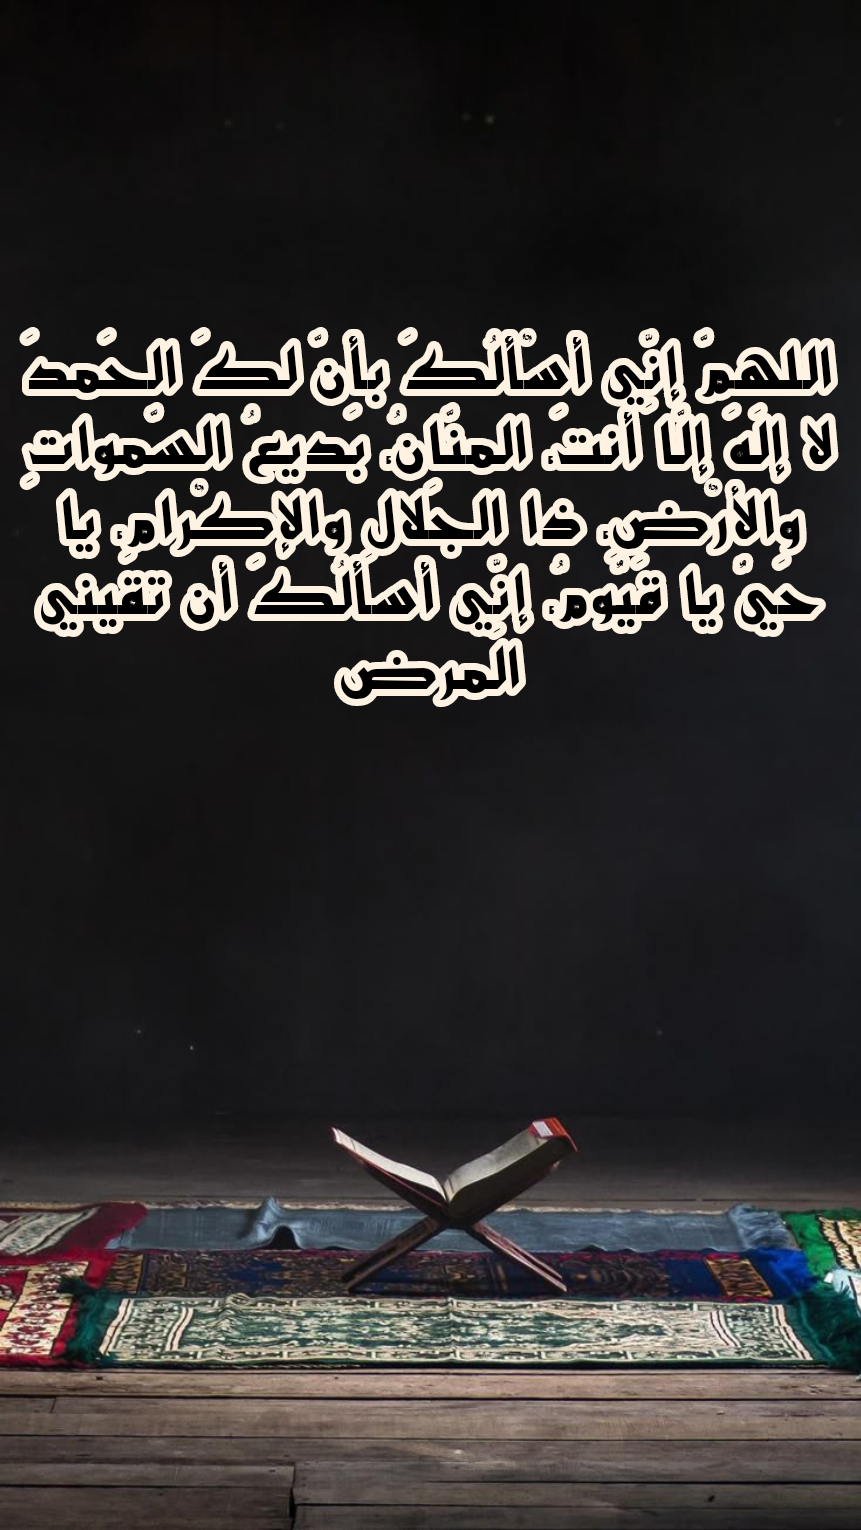 اللهمَّ إنِّي أسأَلُكَ بأنَّ لكَ الحَمدَ
لا إلَهَ إلَّا أنتَ، المنَّانُ، بَديعُ السَّمواتِ
والأرْضِ، ذا الجَلالِ والإكْرامِ، يا
حَيُّ يا قَيُّومُ، إنِّي أسأَلُكَ أن تقَيني
المَرض